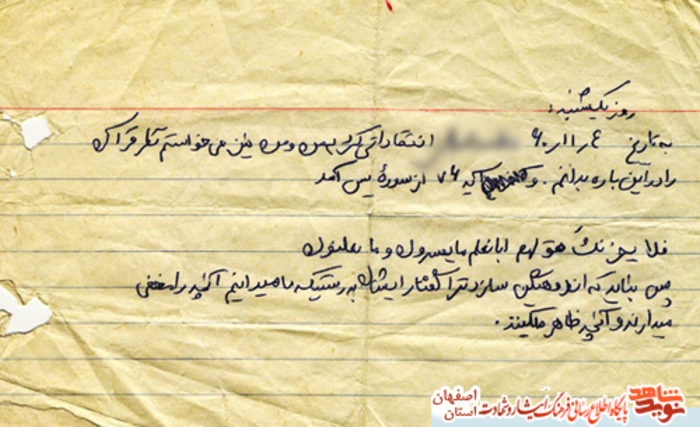 روز یکشنبه:
به تاریخ ۶۰/۱۱/۴ انتقاداتی کرد بمن و من نیز می‌خواستم نظر قرآن
را در این باره بدانم. و آیه ۷۶ از سورهٔ یس آمد
فلا یحزنک قولهم انا نعلم ما یسرون و ما یعلنون
پس نباید که اندوهگین سازد ترا گفتار ایشان به درستیکه ما میدانیم آنچه را مخفی
میدارند و آنچه ظاهر میکنند.
نوید شاهد
پایگاه اطلاع رسانی فرهنگ ایثار و شهادت استان اصفهان